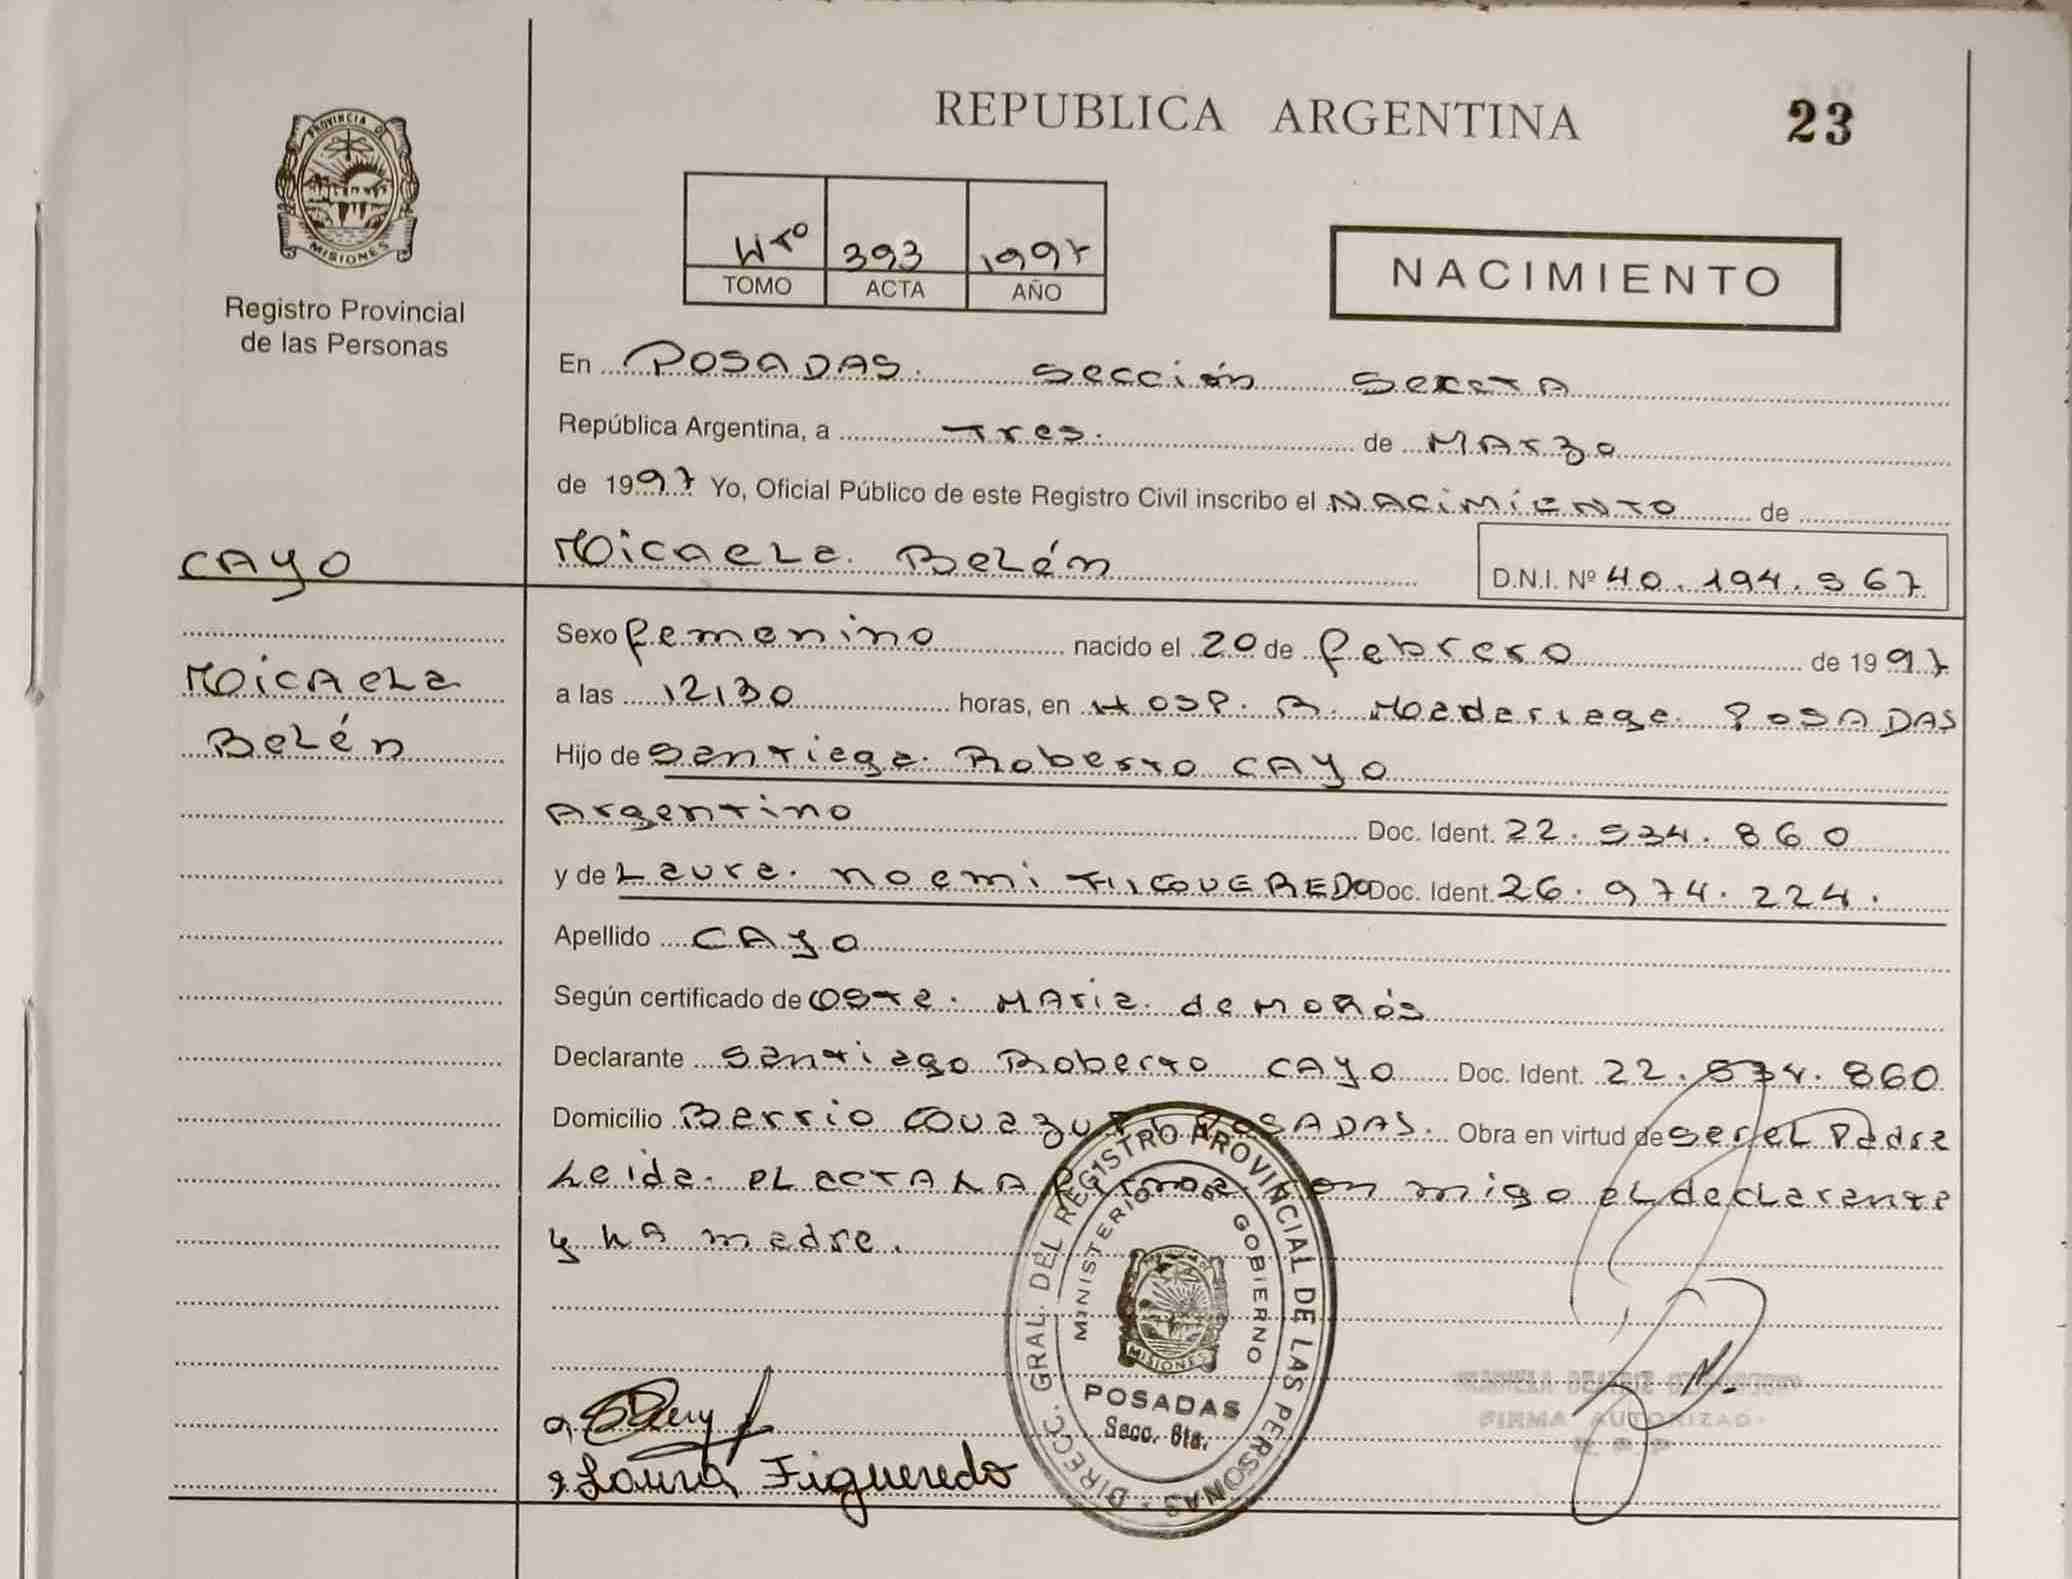 PROVINCIA DE
MISIONES
Registro Provincial
de las Personas
REPUBLICA ARGENTINA
23
393 1997
TOMO ACTA AÑO
NACIMIENTO
En POSADAS. sección sexta
República Argentina, a Tres. de Marzo
de 1997 Yo, Oficial Público de este Registro Civil inscribo el NACIMIENTO de
CAYO
Micaela Belén
D.N.I. Nº 40.194.967
Sexo femenino nacido el 20 de febrero de 1997
Micaela
Belén
a las 12,30 horas, en Hosp. R. Madariaga. POSADAS
Hijo de Santiago Roberto CAYO
Argentino Doc. Ident. 22.534.860
y de Laura Noemi FIGUEREDO Doc. Ident. 26.974.224.
Apellido CAYO
Según certificado de Obste. Maria de
Declarante Santiago Roberto CAYO Doc. Ident. 22.534.860
Domicilio Barrio POSADAS. Obra en virtud de ser el Padre
Leida el acta la firma con migo el declarante
y la madre.
DIRECC. GRAL. DEL REGISTRO PROVINCIAL DE LAS PERSONAS
MINISTERIO DE GOBIERNO
MISIONES
POSADAS
Secc. 6ta.
FIRMA AUTORIZAD
Laura Figueredo